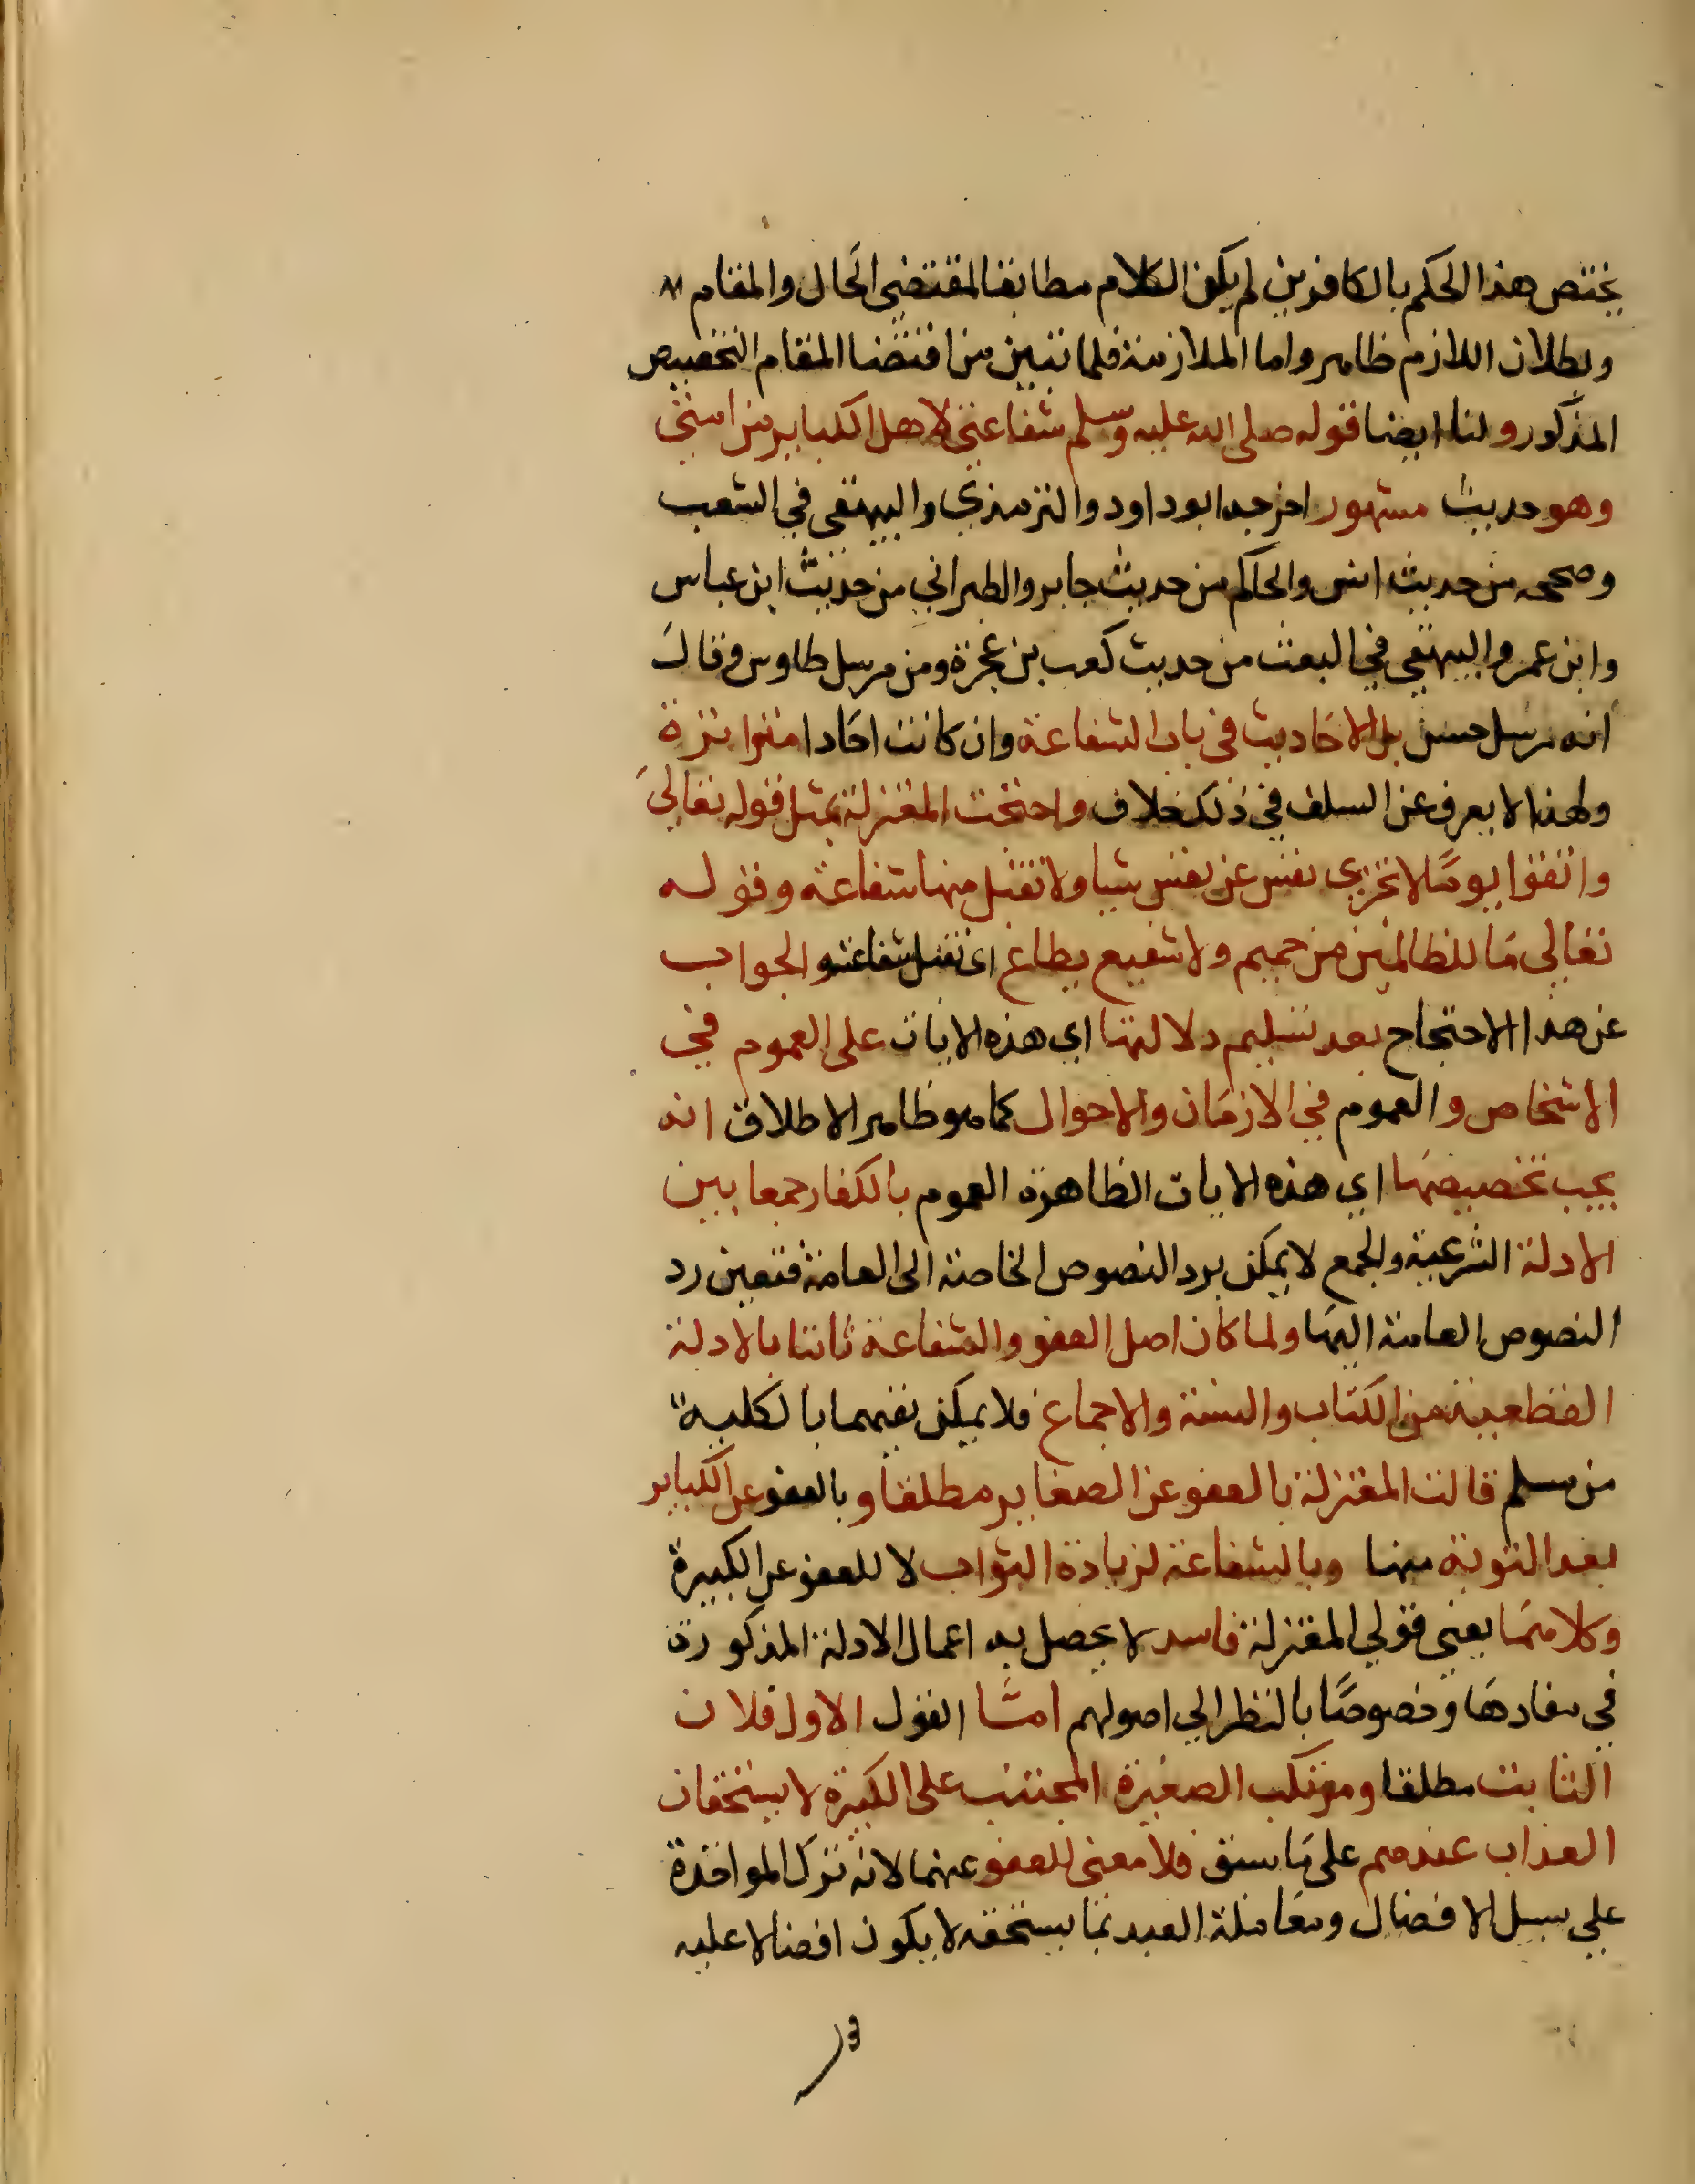 يختص هذا الحكم بالكافرين لم يكن الكلام مطابقا لمقتضى الحال والمقام
وبطلان اللازم ظاهر واما الملازمة فلما تبين من اقتضا المقام التخصيص
المذكور ولنا ايضا قوله صلى الله عليه وسلم شفاعتي لاهل الكباير من امتي
وهو حديث مشهور اخرجه ابو داود والترمذي والبيهقي في الشعب
وصححه من حديث انس والحاكم من حديث جابر والطبراني من حديث ابن عباس
وابن عمر والبيهقي في البعث من حديث كعب بن عجرة ومن مرسل طاوس وقال
انه مرسل حسن بل الاحاديث في باب الشفاعة وان كانت احادا متواترة
ولهذا لا يعرف عن السلف في ذلك خلاف واحتجت المعتزلة بمثل قوله تعالى
واتقوا يوما لا تجزى نفس عن نفس شيا ولا تقبل منها شفاعة وقوله
تعالي ما للظالمين من حميم ولا شفيع يطاع اي تقبل شفاعته والجواب
عن هذا الاحتجاج بعد تسليم دلالتها اي هذه الايات على العموم في
الاشخاص والعموم في الازمان والاحوال كما هو ظاهر الاطلاق انه
يجب تخصيصها اي هذه الايات الظاهرة العموم بالكفار جمعا بين
الادلة الشرعية والجمع لا يمكن برد النصوص الخاصة الى العامة فتعين رد
النصوص العامة اليها ولما كان اصل العفو والشفاعة ثابتا بالادلة
القطعية من الكتاب والسنة والاجماع فلا يمكن نفيهما بالكلية
من مسلم قالت المعتزلة بالعفو عن الصغاير مطلقا وبالعفو عن الكباير
بعد التوبة منها وبالشفاعة لزيادة الثواب لا للعفو عن الكبيرة
وكلاهما يعني قولي المعتزلة فاسد لا يحصل به اعمال الادلة المذكورة
في مفادها وخصوصا بالنظر الي اصولهم اما القول الاول فلان
التايب مطلقا ومرتكب الصغيرة المجتنب على الكبيرة لا يستحقان
العذاب عندهم على ما سبق فلا معنى للعفو عنهما لانه ترك المواخذة
علي سبيل الافضال ومعاملة العبد بما يستحقه لا يكون افضالا عليه